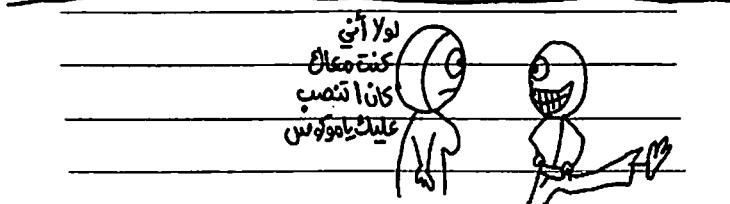 لولا أني
كنت معاك
كان اتنصب
عليك ياموكوس